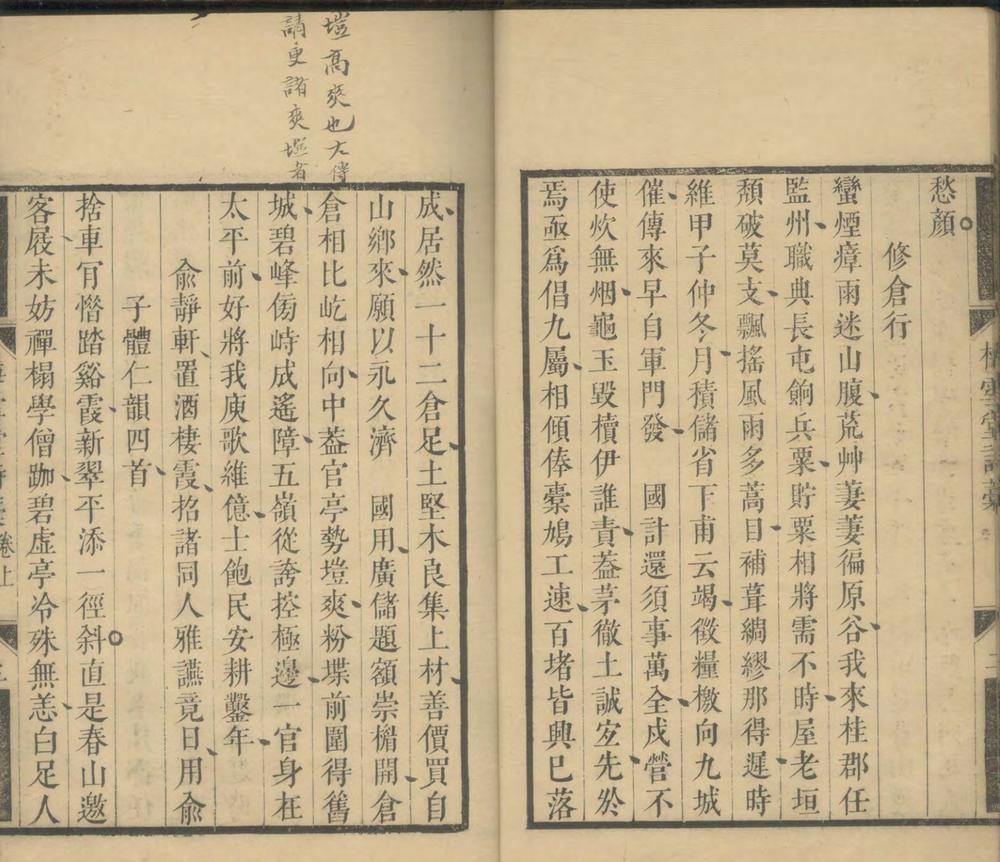 愁顏
修倉行
蠻煙瘴雨迷山腹荒艸萋萋徧原谷我來桂郡任
監州職典長屯餉兵粟貯粟相將需不時屋老垣
頹破莫支飄搖風雨多蒿目補葺綢繆那得遲時
維甲子仲冬月積儲省下甫云竭徵糧檄向九城
催傳來早自軍門發　國計還須事萬全戍營不
使炊無烟龜玉毀櫝伊誰責蓋茅徹土誠宜先於
焉亟爲倡九屬相傾俸橐鳩工速百堵皆興已落
塏高爽也大傳
請更諸爽塏者
成居然一十二倉足土堅木良集上材善價買自
山鄉來願以永久濟　國用廣儲題額崇楣開倉
倉相比屹相向中蓋官亭勢塏爽粉堞前圍得舊
城碧峰傍峙成遙障五嶺從誇控極邊一官身在
太平前好將我庾歌維億士飽民安耕鑿年
俞靜軒置酒棲霞招諸同人雅讌竟日用俞
子體仁韻四首
捨車肎憯踏谿霞新翠平添一徑斜直是春山邀
客屐未妨禪榻學僧跏碧虛亭冷殊無恙白足人